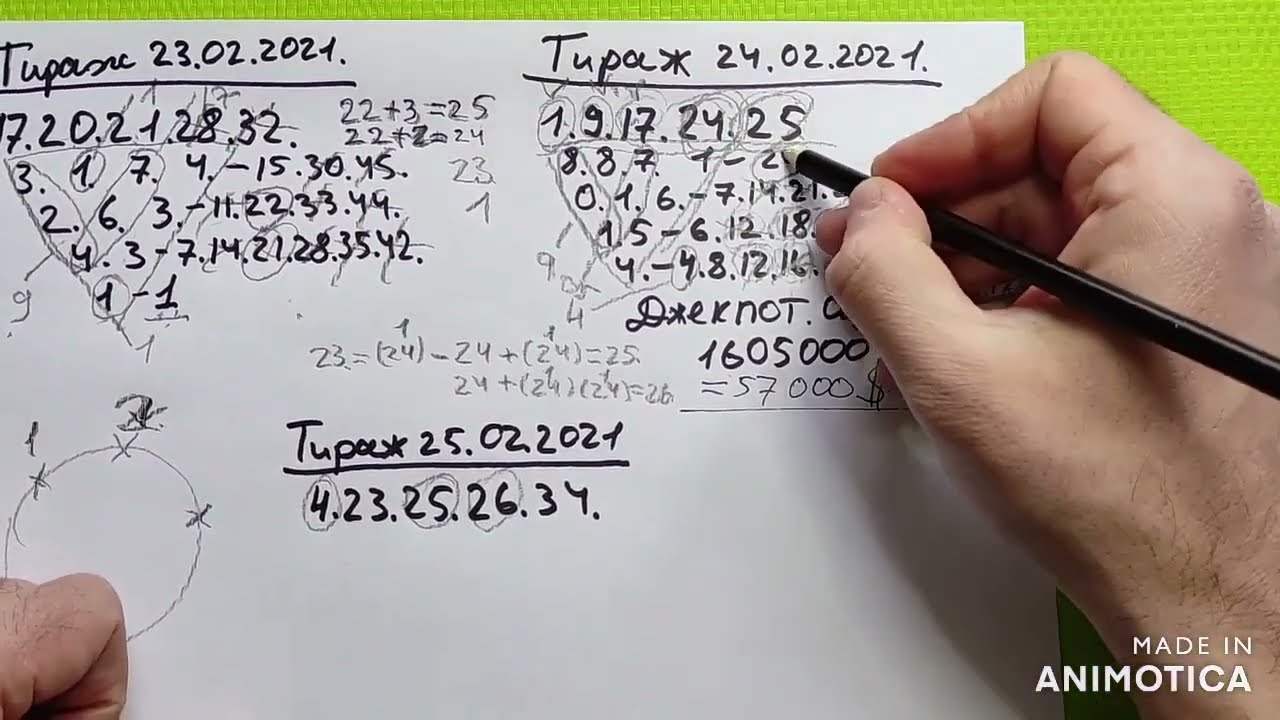 Тираж 23.02.2021.
17.20.21.28.32.
3. 1. 7. 4. - 15.30.45.
2. 6. 3. - 11.22.33.44.
4. 3 - 7.14.21.28.35.42.
1 - 1
9
1
22+3=25
22+2=24
23
1
Тираж 24.02.2021.
1.9.17.24.25
8.8.7. 1 -
0.1.6. - 7.14.21.
1.5 - 6.12.18
4. - 4.8.12.16.
9
4
Джекпот.
1605000
=57000$
23=(24) - 24+(24)=25.
24+(24)(24)=26
Тираж 25.02.2021
4.23.25.26.34.
1
MADE IN
ANIMOTICA